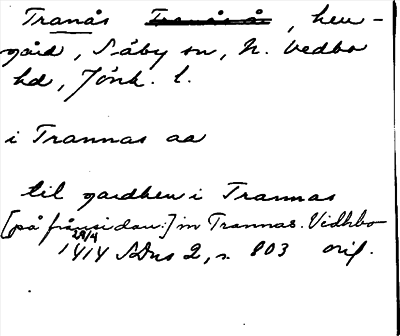 Tranås Tranås å, herr-
gård, Säby sn, N. Vedbo
hd, Jönk. l.
i Trannas aa
til gardhen i Trannas
[på frånsidan:] in Trannas. Vidhbo
29/4
1414 SDns 2, s. 803 orig.